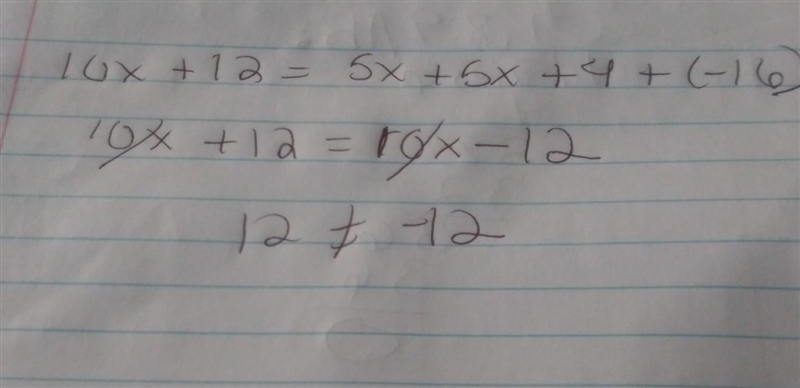 10x + 12 = 5x + 5x + 4 + (-16)
10x + 12 = 10x - 12
12 ≠ -12